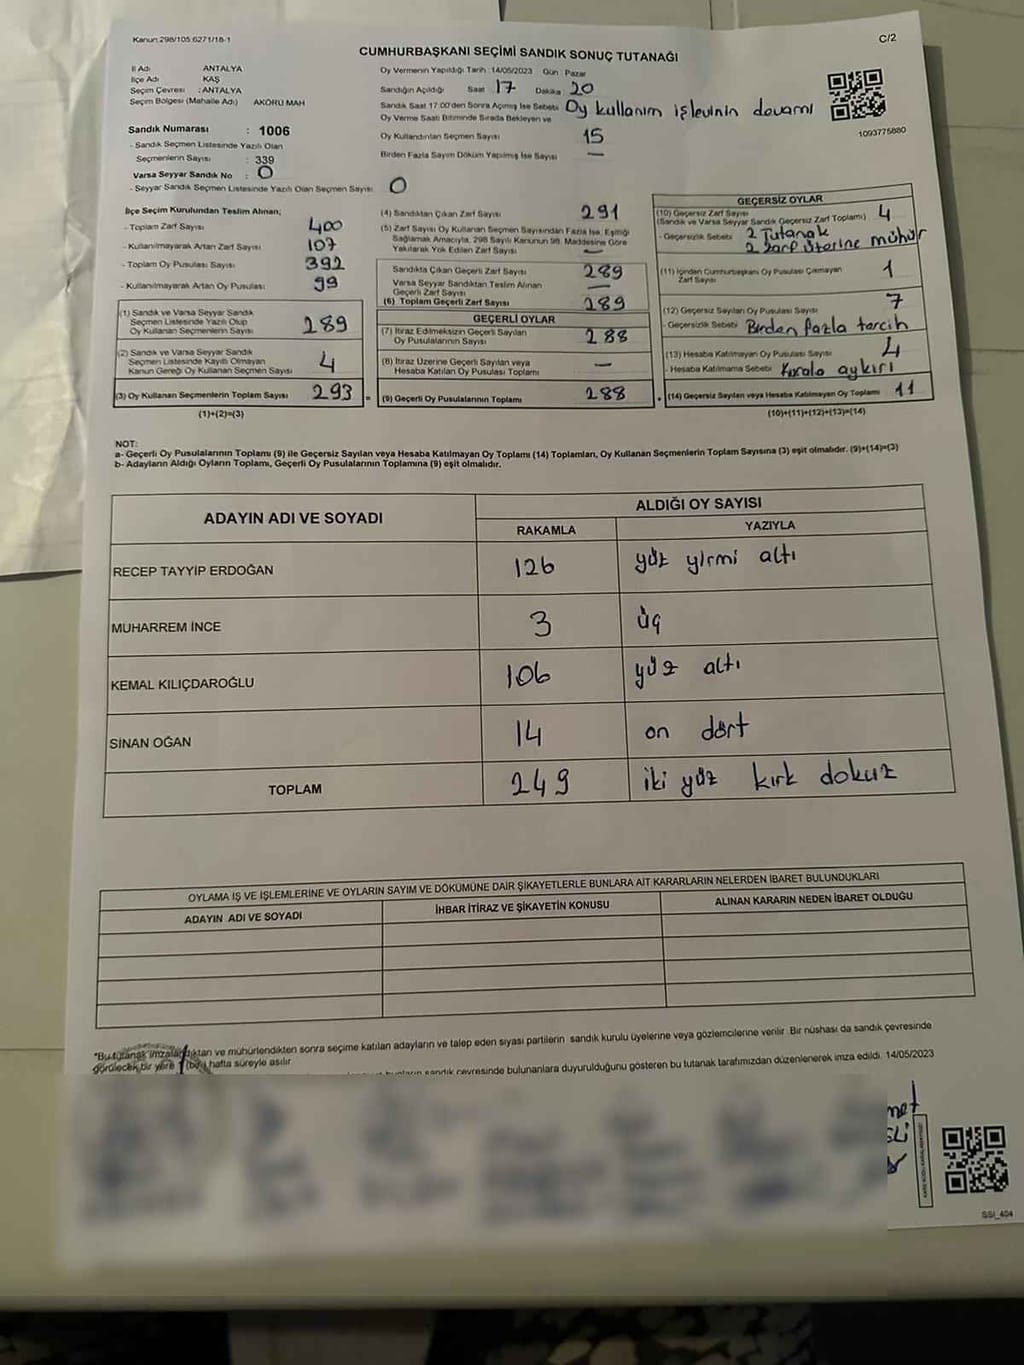 Kanun:298/105:6271/18-1
C/2
CUMHURBAŞKANI SEÇİMİ SANDIK SONUÇ TUTANAĞI
İl Adı ANTALYA
İlçe Adı KAŞ
Seçim Çevresi : ANTALYA
Seçim Bölgesi (Mahalle Adı) AKORU MAH
Sandık Numarası : 1006
- Sandık Seçmen Listesinde Yazılı Olan
Seçmenlerin Sayısı : 339
Varsa Seyyar Sandık No : 0
- Seyyar Sandık Seçmen Listesinde Yazılı Olan Seçmen Sayısı: 0
Oy Vermenin Yapıldığı Tarih :14/05/2023 Gün : Pazar
Sandığın Açıldığı Saat : 17 Dakika : 20
Sandık Saat 17.00'den Sonra Açımış İse Sebebi: Oy kullanım işlevinin devamı
Oy Verme Saati Bitiminde Sırada Bekleyen ve
Oy Kullandırılan Seçmen Sayısı 15
Birden Fazla Sayım Döküm Yapılmış İse Sayısı —
1093775880
İlçe Seçim Kurulundan Teslim Alınan;
- Toplam Zarf Sayısı : 400
- Kullanılmayarak Artan Zarf Sayısı : 107
- Toplam Oy Pusulası Sayısı : 392
- Kullanılmayarak Artan Oy Pusulası : 99
(1) Sandık ve Varsa Seyyar Sandık
Seçmen Listesinde Yazılı Olup
Oy Kullanan Seçmenlerin Sayısı : 289
(2) Sandık ve Varsa Seyyar Sandık
Seçmen Listesinde Kayıtlı Olmayan
Kanun Gereği Oy Kullanan Seçmen Sayısı : 4
(3) Oy Kullanan Seçmenlerin Toplam Sayısı : 293 =
(1)+(2)=(3)
(4) Sandıktan Çıkan Zarf Sayısı : 291
(5) Zarf Sayısı Oy Kullanan Seçmen Sayısından Fazla İse, Eşitliği
Sağlamak Amacıyla, 298 Sayılı Kanunun 98. Maddesine Göre
Yakılarak Yok Edilen Zarf Sayısı : —
Sandıkta Çıkan Geçerli Zarf Sayısı : 289
Varsa Seyyar Sandıktan Teslim Alınan
Geçerli Zarf Sayısı : —
(6) Toplam Geçerli Zarf Sayısı : 289
GEÇERLİ OYLAR
(7) İtiraz Edilmeksizin Geçerli Sayılan
Oy Pusulalarının Sayısı : 288
(8) İtiraz Üzerine Geçerli Sayılan veya
Hesaba Katılan Oy Pusulası Toplamı : —
(9) Geçerli Oy Pusulalarının Toplamı : 288 +
GEÇERSİZ OYLAR
(10) Geçersiz Zarf Sayısı
(Sandık ve Varsa Seyyar Sandık Geçersiz Zarf Toplamı) : 4
- Geçersizlik Sebebi : 2 Tutanak
2 zarf üzerine mühür
(11) İçinden Cumhurbaşkanı Oy Pusulası Çıkmayan
Zarf Sayısı : 1
(12) Geçersiz Sayılan Oy Pusulası Sayısı : 7
- Geçersizlik Sebebi : Birden fazla tercih
(13) Hesaba Katılmayan Oy Pusulası Sayısı : 4
- Hesaba Katılmama Sebebi : Kurala aykırı
(14) Geçersiz Sayılan veya Hesaba Katılmayan Oy Toplamı : 11
(10)+(11)+(12)+(13)=(14)
NOT:
a- Geçerli Oy Pusulalarının Toplamı (9) ile Geçersiz Sayılan veya Hesaba Katılmayan Oy Toplamı (14) Toplamları, Oy Kullanan Seçmenlerin Toplam Sayısına (3) eşit olmalıdır. (9)+(14)=(3)
b- Adayların Aldığı Oyların Toplamı, Geçerli Oy Pusulalarının Toplamına (9) eşit olmalıdır.
ADAYIN ADI VE SOYADI
ALDIĞI OY SAYISI
RAKAMLA YAZIYLA
RECEP TAYYİP ERDOĞAN 126 yüz yirmi altı
MUHARREM İNCE 3 üç
KEMAL KILIÇDAROĞLU 106 yüz altı
SİNAN OĞAN 14 on dört
TOPLAM 249 iki yüz kırk dokuz
OYLAMA İŞ VE İŞLEMLERİNE VE OYLARIN SAYIM VE DÖKÜMÜNE DAİR ŞİKAYETLERLE BUNLARA AİT KARARLARIN NELERDEN İBARET BULUNDUKLARI
ADAYIN ADI VE SOYADI İHBAR İTİRAZ VE ŞİKAYETİN KONUSU ALINAN KARARIN NEDEN İBARET OLDUĞU
*Bu tutanak imzalandıktan ve mühürlendikten sonra seçime katılan adayların ve talep eden siyasi partilerin sandık kurulu üyelerine veya gözlemcilerine verilir. Bir nüshası da sandık çevresinde
görülecek bir yere 1 (bir) hafta süreyle asılır.
sandık çevresinde bulunanlara duyurulduğunu gösteren bu tutanak tarafımızdan düzenlenerek imza edildi. 14/05/2023
SSI_404